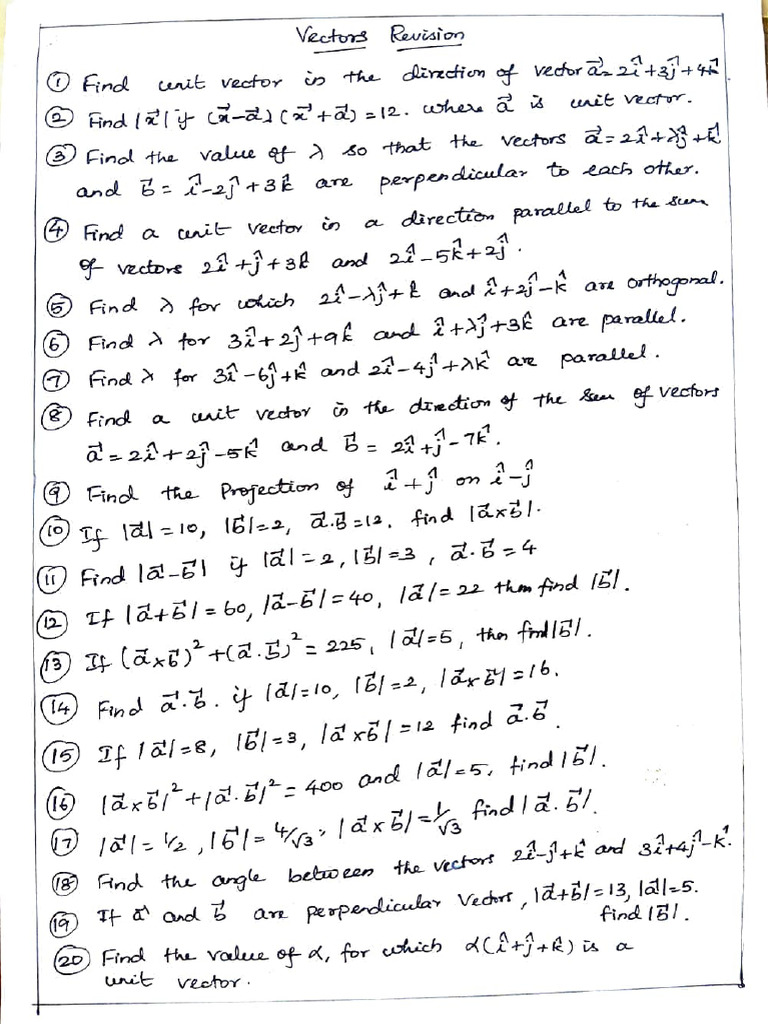 Vectors Revision
① Find unit vector in the direction of vector a⃗ = 2î+3ĵ+4k̂
② Find |x⃗| if (x⃗-a⃗)(x⃗+a⃗)=12. where a⃗ is unit vector.
③ Find the value of λ so that the vectors a⃗=2î+λĵ+k̂
and b⃗ = î-2ĵ+3k̂ are perpendicular to each other.
④ Find a unit vector in a direction parallel to the sum
of vectors 2î+ĵ+3k̂ and 2î-5k̂+2ĵ.
⑤ Find λ for which 2î-λĵ+k̂ and î+2ĵ-k̂ are orthogonal.
⑥ Find λ for 3î+2ĵ+9k̂ and î+λĵ+3k̂ are parallel.
⑦ Find λ for 3î-6ĵ+k̂ and 2î-4ĵ+λk̂ are parallel.
⑧ Find a unit vector in the direction of the sum of vectors
a⃗ = 2î+2ĵ-5k̂ and b⃗ = 2î+ĵ-7k̂.
⑨ Find the Projection of î+ĵ on î-ĵ
⑩ If |a⃗|=10, |b⃗|=2, a⃗.b⃗=12, find |a⃗xb⃗|.
⑪ Find |a⃗-b⃗| if |a⃗|=2, |b⃗|=3, a⃗.b⃗=4
⑫ If |a⃗+b⃗|=60, |a⃗-b⃗|=40, |a⃗|=22 then find |b⃗|.
⑬ If (a⃗xb⃗)²+(a⃗.b⃗)²=225, |a⃗|=5, then find |b⃗|.
⑭ Find a⃗.b⃗. if |a⃗|=10, |b⃗|=2, |a⃗xb⃗|=16.
⑮ If |a⃗|=8, |b⃗|=3, |a⃗xb⃗|=12 find a⃗.b⃗
⑯ |a⃗xb⃗|²+|a⃗.b⃗|²=400 and |a⃗|=5, find |b⃗|.
⑰ |a⃗|=1/2, |b⃗|=4/√3, |a⃗xb⃗|=1/√3 find |a⃗.b⃗|.
⑱ Find the angle between the vectors 2î-ĵ+k̂ and 3î+4ĵ-k̂.
⑲ If a⃗ and b⃗ are perpendicular Vectors, |a⃗+b⃗|=13, |a⃗|=5.
find |b⃗|.
⑳ Find the value of α, for which α(î+ĵ+k̂) is a
unit vector.